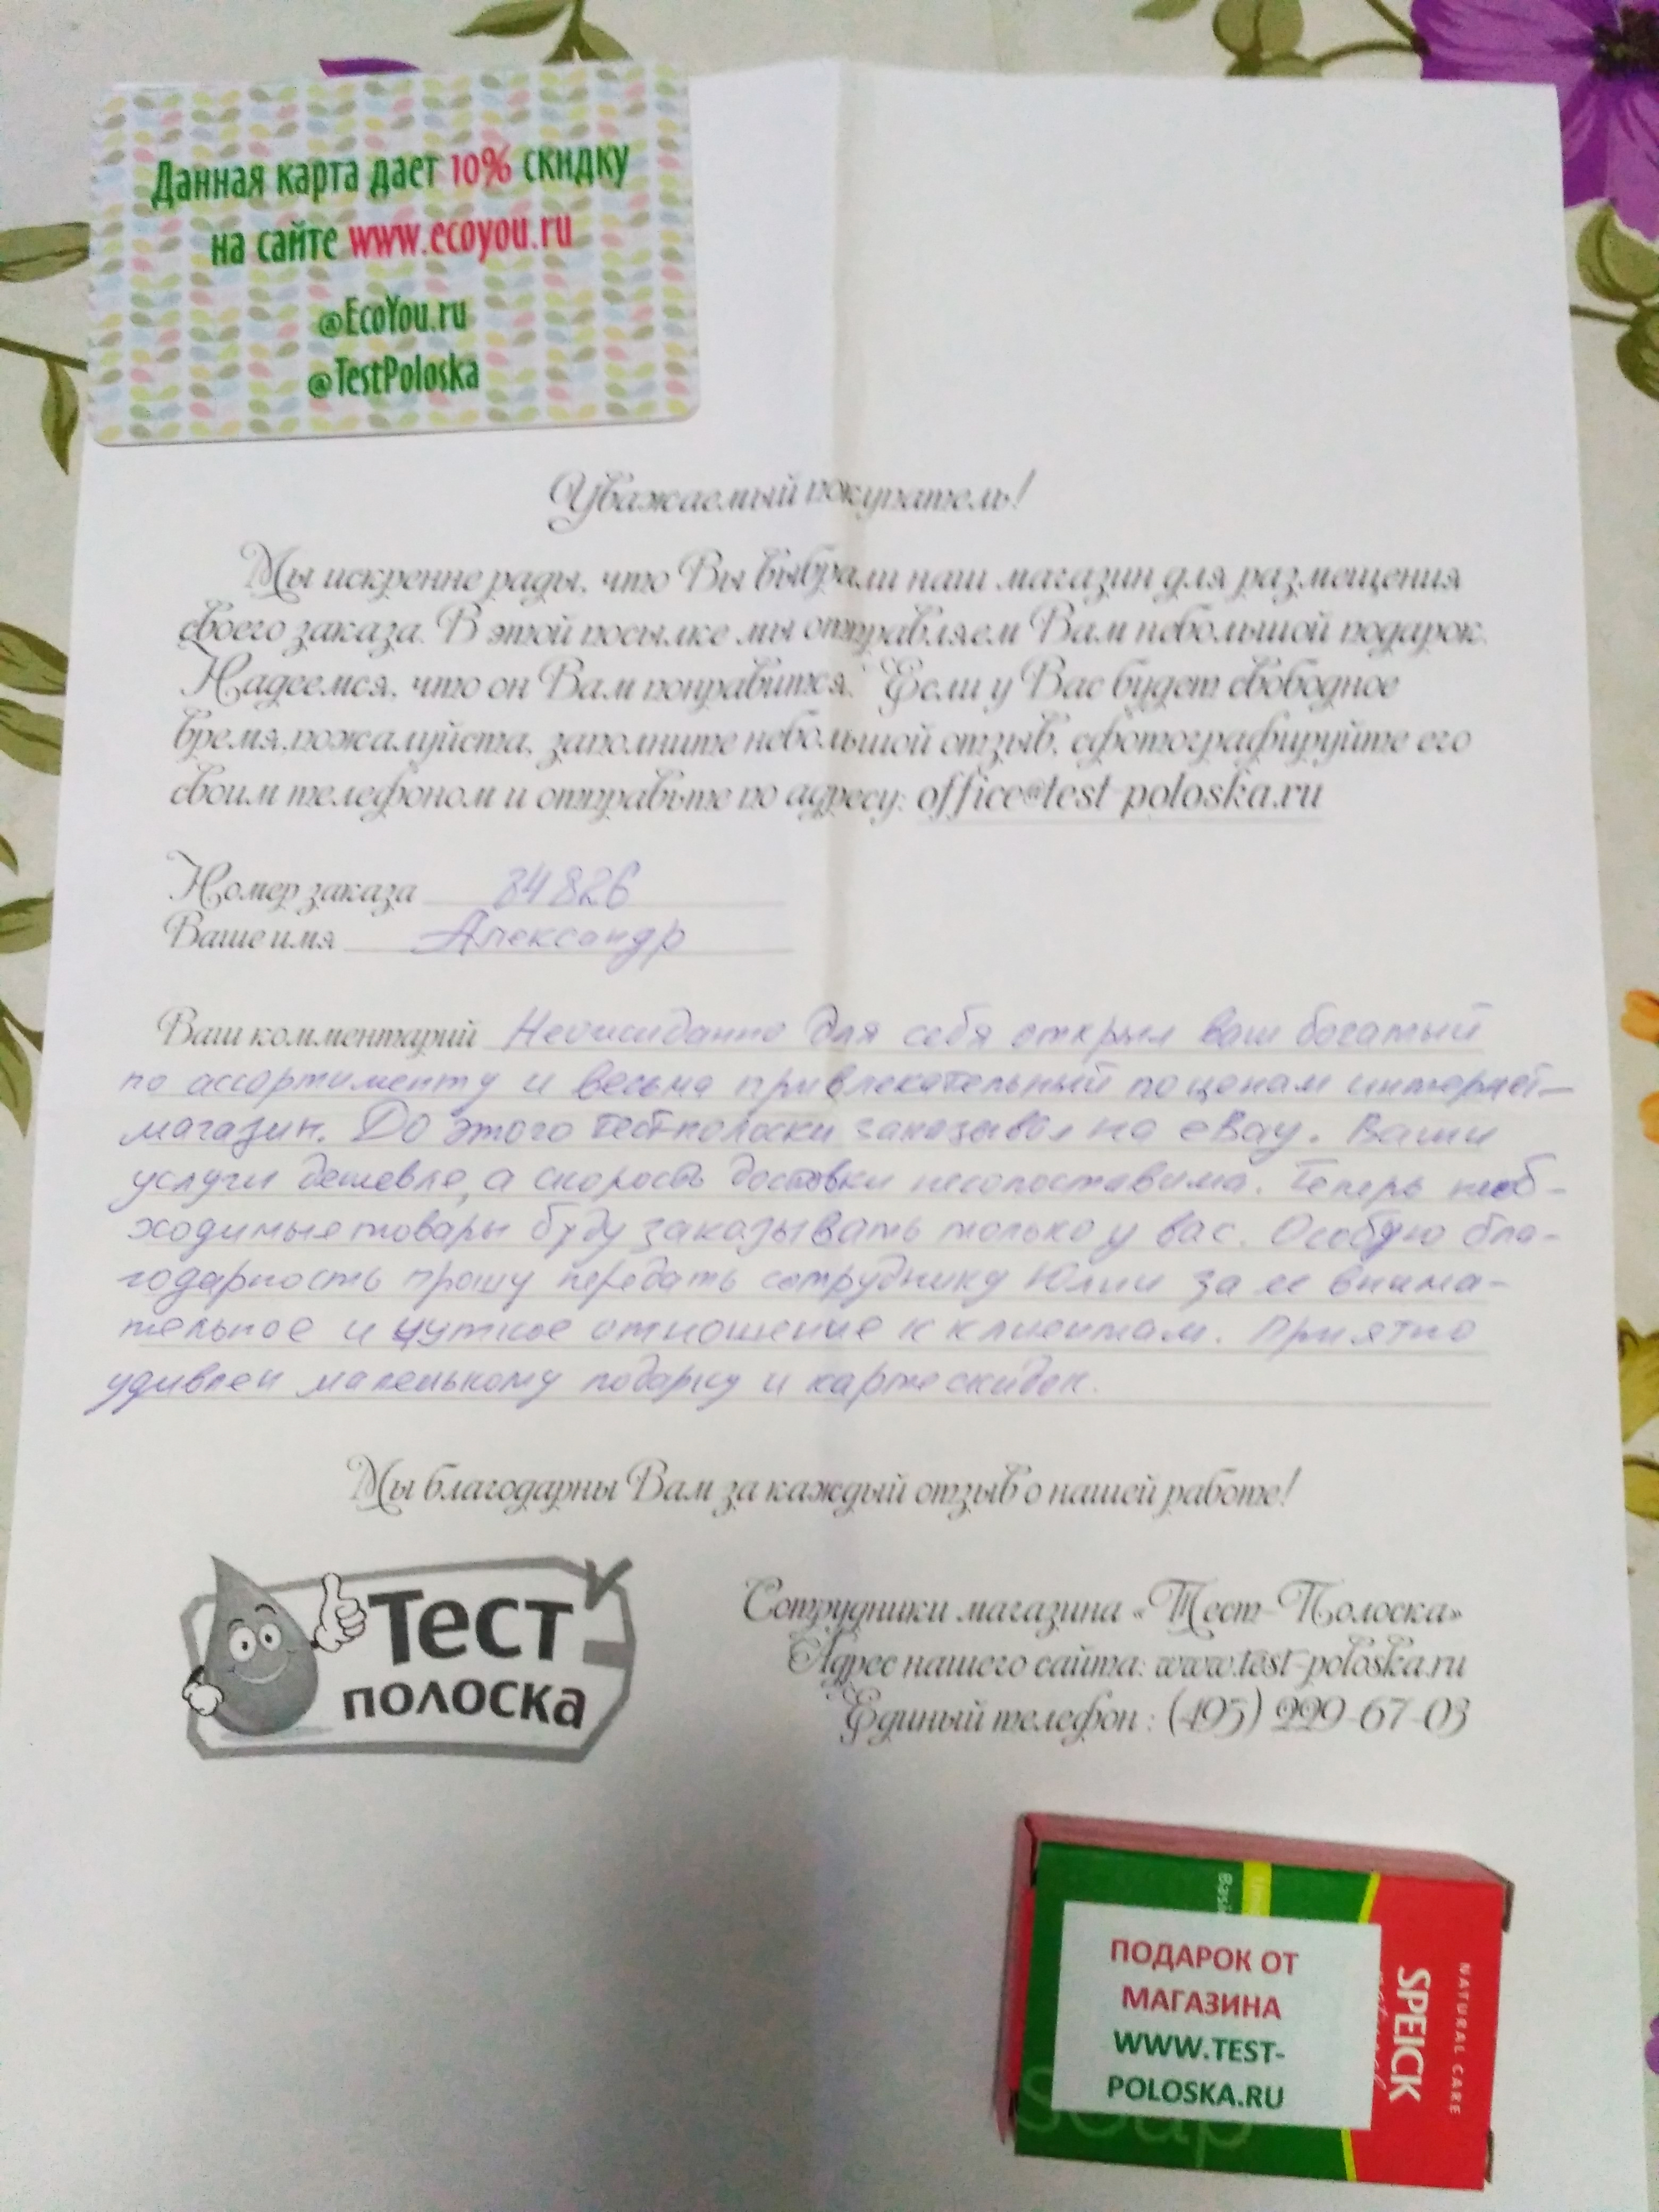 Данная карта дает 10% скидку
на сайте www.ecoyou.ru
@EcoYou.ru
@TestPoloska
Уважаемый покупатель!
Мы искренне рады, что Вы выбрали наш магазин для размещения
своего заказа. В этой посылке мы отправляем Вам небольшой подарок.
Надеемся, что он Вам понравится. Если у Вас будет свободное
время, пожалуйста, заполните небольшой отзыв, сфотографируйте его
своим телефоном и отправьте по адресу: office@test-poloska.ru
Номер заказа 84826
Ваше имя Александр
Ваш комментарий Неожиданно для себя открыл ваш богатый
по ассортименту и весьма привлекательный по ценам интернет-
магазин. До этого тест-полоски заказывал на eBay. Ваши
услуги дешевле, а скорость доставки несопоставима. Теперь необ-
ходимые товары буду заказывать только у вас. Особую бла-
годарность прошу передать сотруднику Юлии за ее внима-
тельное и чуткое отношение к клиентам. Приятно
удивлен маленькому подарку и карте скидок.
Мы благодарны Вам за каждый отзыв о нашей работе!
Тест
полоска
Сотрудники магазина «Тест-Полоска»
Адрес нашего сайта: www.test-poloska.ru
Единый телефон : (495) 229-67-03
ПОДАРОК ОТ
МАГАЗИНА
WWW.TEST-
POLOSKA.RU
SPEICK
NATURAL CARE
soap